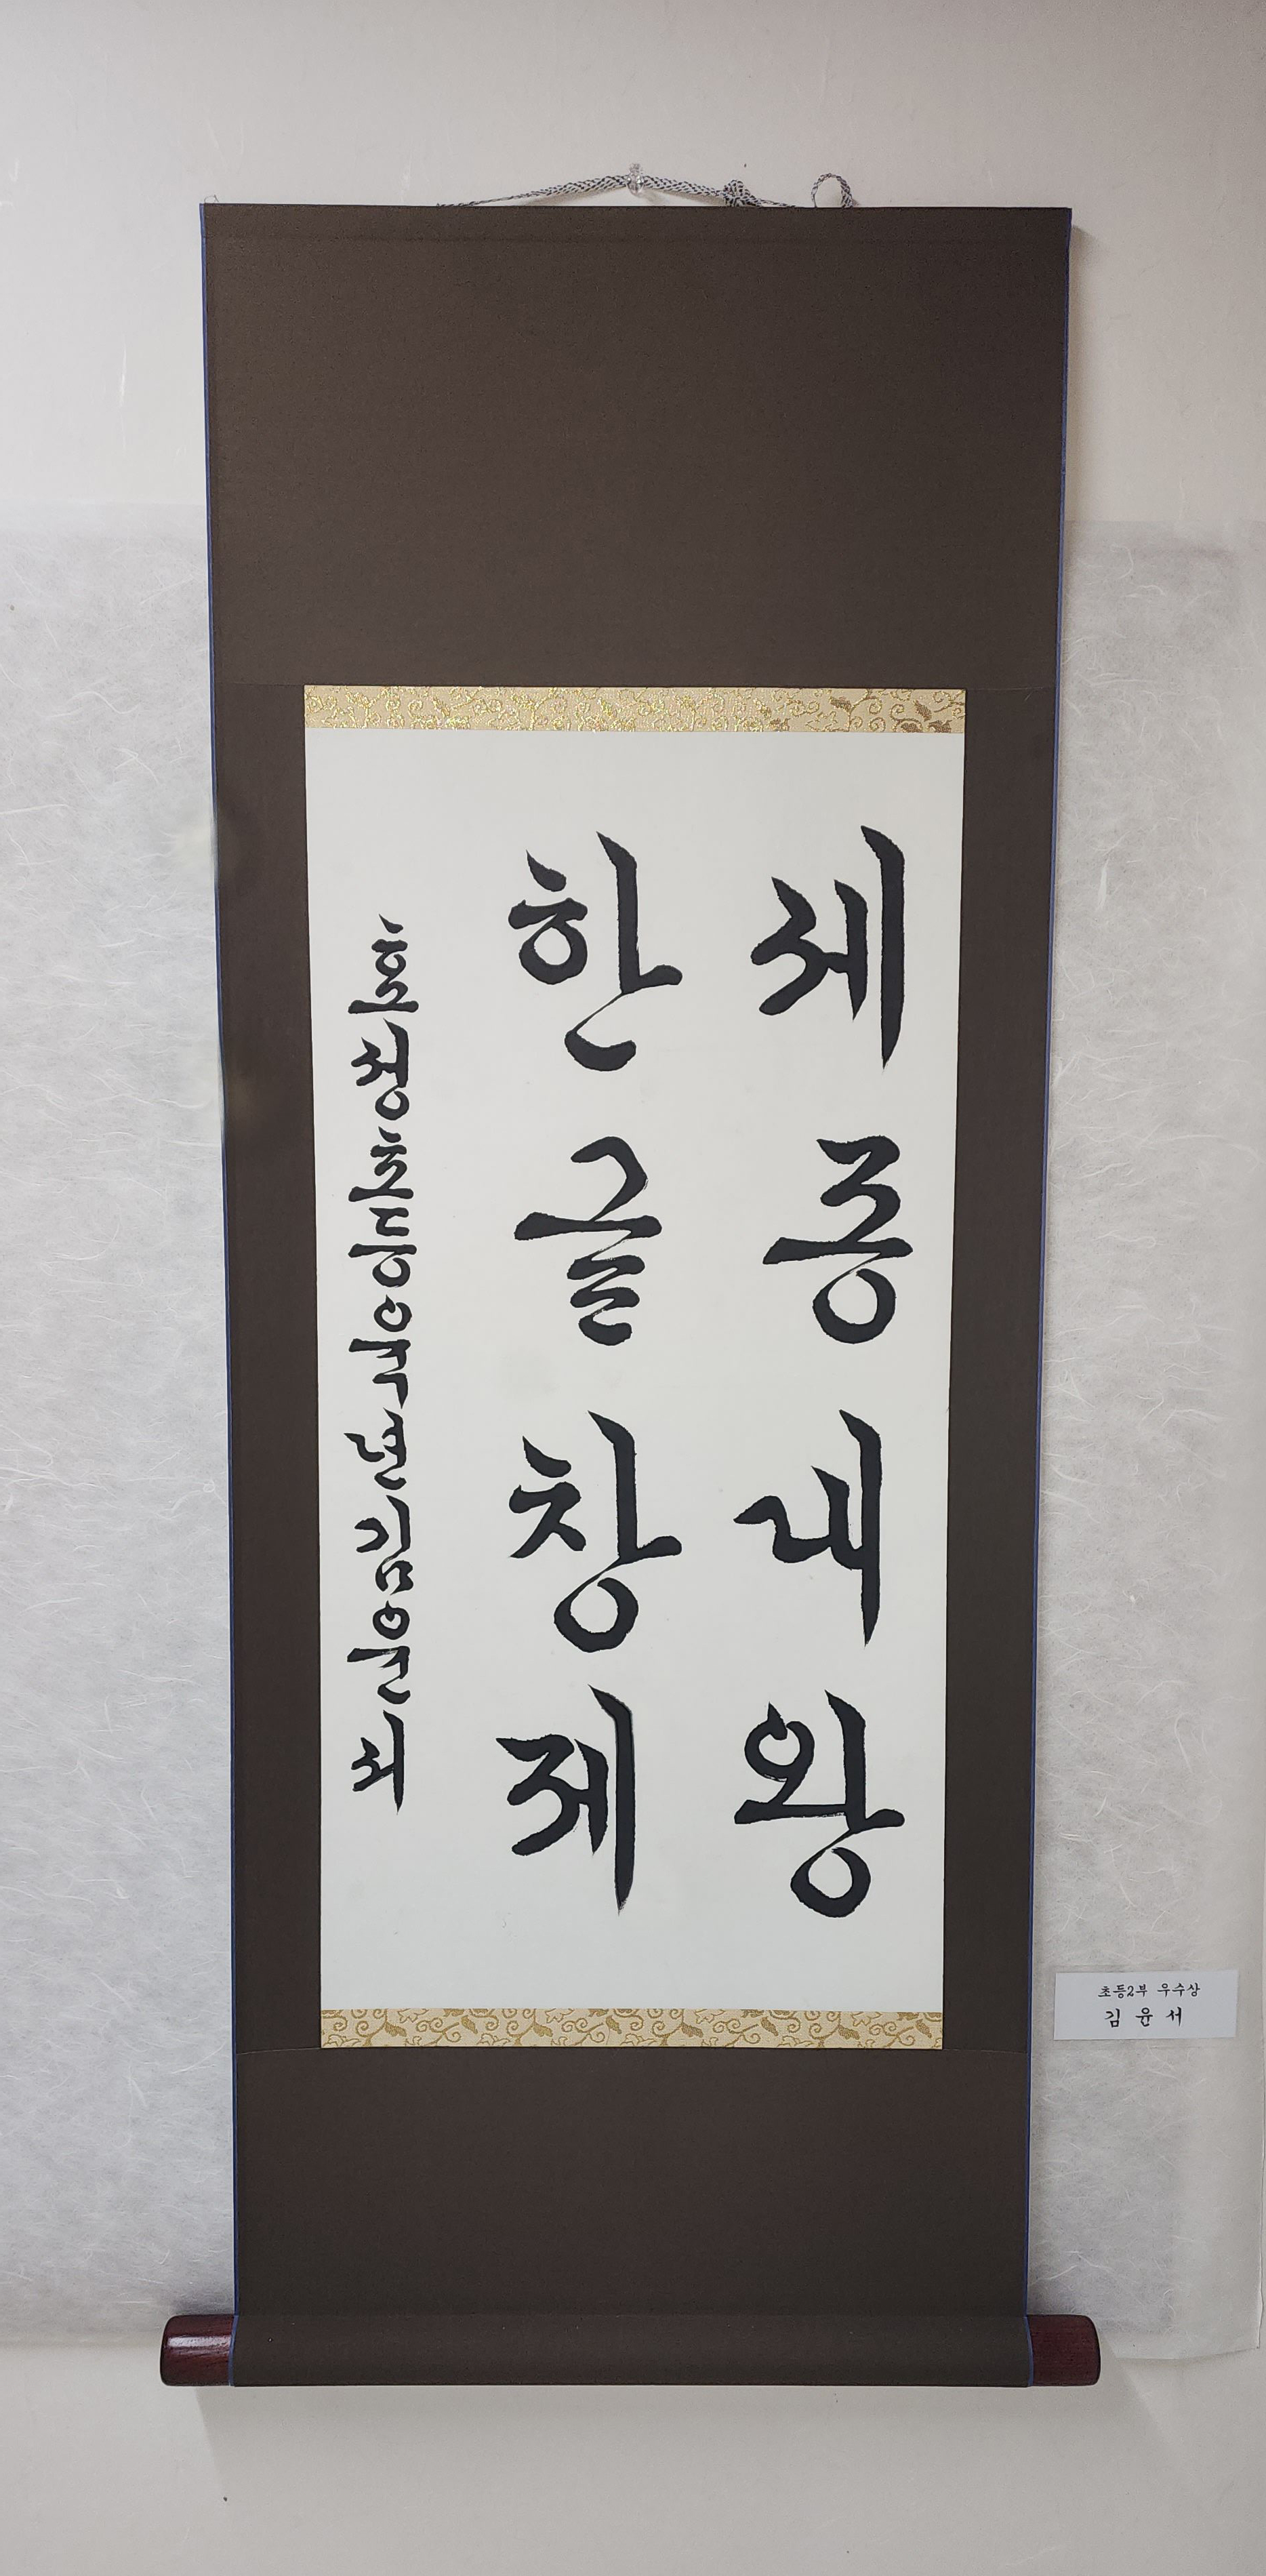 세종대왕
한글창제
효성초등육년김윤서
초등2부 우수상
김 윤 서